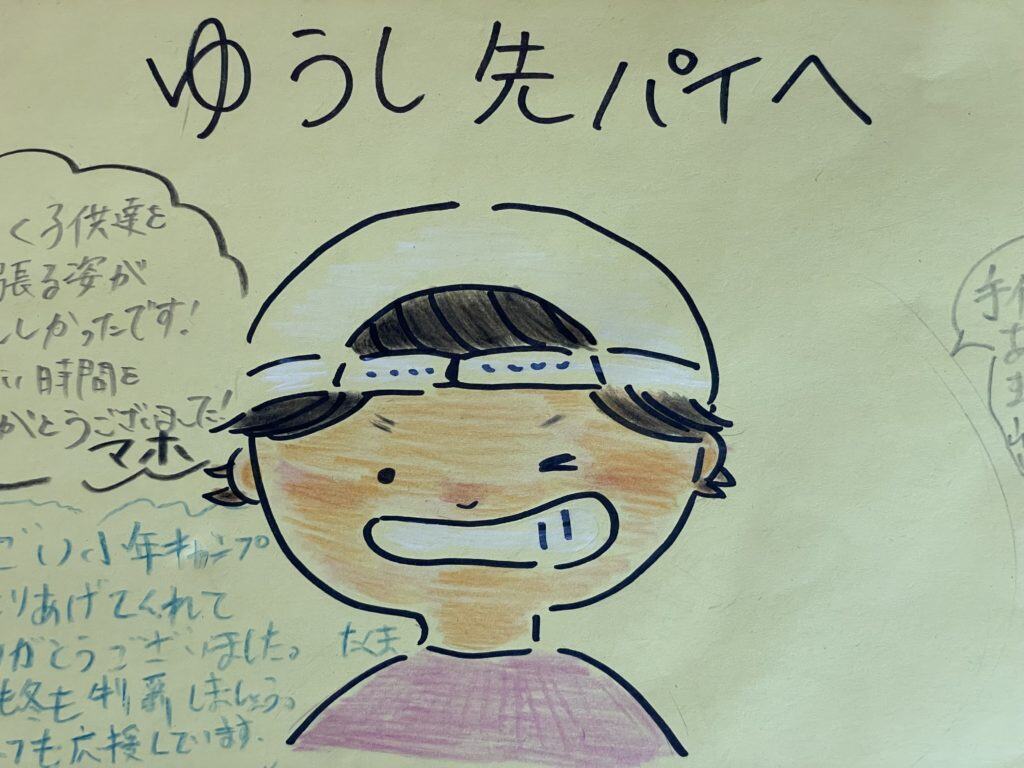 ゆうし先パイへ
く子供達を
張る姿が
しかったです!
時間を
がとうございました!
マホ
ごい少年キャンプ
りあげてくれて
がとうございました。 たくま
も冬も制覇しましょう。
ても応援しています。
手